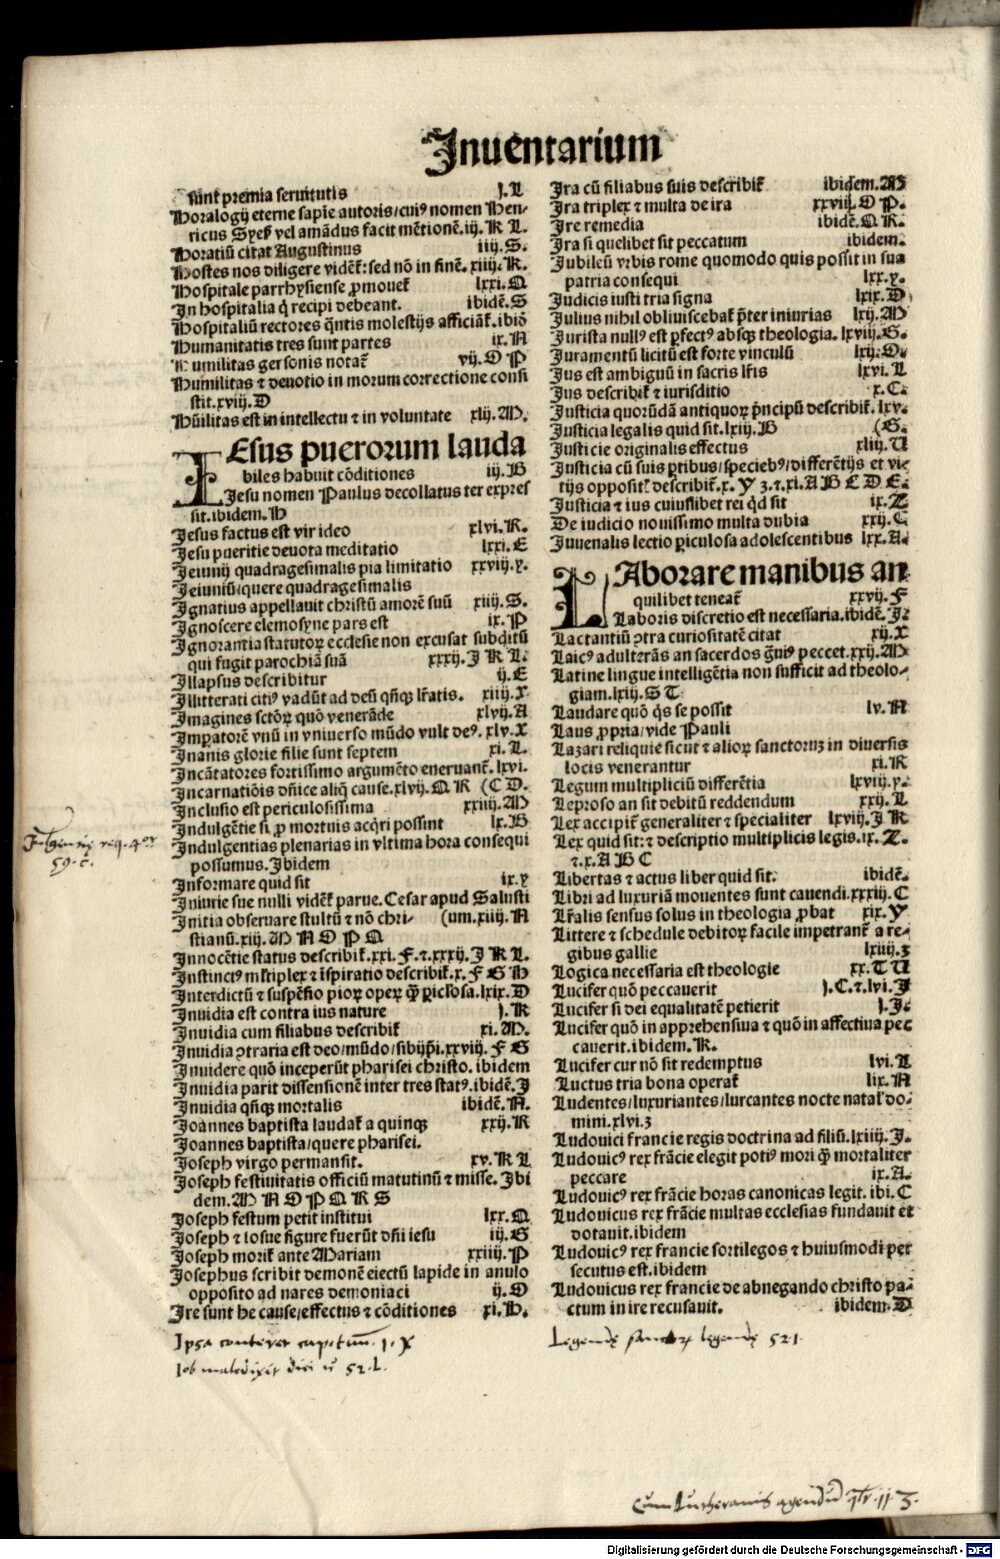 Inuentarium
sunt premia seruitutis j.L
Horalogij eterne sapīe autoris/cuiꝰ nomen Hen-
ricus Syeß vel amādus facit mētionē.iij.K L.
Horatiū citat Augustinus iiij.S.
Hostes nos diligere vidēt̄: sed nō in finē.xiiij.K.
Hospitale parrhysiense ꝓmouet̄ lxxi.Q
In hospitalia q̄ recipi debeant. ibidē.S
Hospitaliū rectores q̄ntis molestijs afficiāt̄.ibiō
Humanitatis tres sunt partes ix.N
Humilitas gersonis notat̄ vij.O P
Humilitas ⁊ deuotio in morum correctione consi
stit.xvij.D
Hūilitas est in intellectu ⁊ in voluntate xlij.M.
IEsus puerorum lauda
biles habuit cōditiones iij.B
Iesu nomen Paulus decollatus ter expres
sit.ibidem.H
Jesus factus est vir ideo xlvi.K.
Jesu pueritie deuota meditatio lxxi.E
Jeiunij quadragesimalis pia limitatio xxvij.y.
Jeiuniū/quere quadragesimalis
Ignatius appellauit christū amorē suū xiij.S.
Ignoscere elemosyne pars est ix.P
Ignorantia statutoꝝ ecclesie non excusat subditū
qui fugit parochiā suā xxxij.I K L.
Illapsus describitur ij.E
Illitterati citiꝰ vadūt ad deū q̄ꝫ lr̄atis. xiij.X
Imagines sctōꝝ quō venerāde xlvij.A
Imꝑatorē vnū in vniuerso mūdo vult deꝰ.xlv.X
Inanis glorie filie sunt septem xi.L.
Incātatores fortissimo argumēto eneruant̄.lxvi.
Incarnatiōis dn̄ice aliq̄ cause.xlvij.Q R (C D.
Inclusio est periculosissima xxiij.M
Indulgētie si ꝓ mortuis acq̄ri possint lx.B
Indulgentias plenarias in vltima hora consequi
possumus.Ibidem
Informare quid sit ix.y
Iniurie sue nulli vidēt̄ parue.Cesar apud Salusti
Initia obseruare stultū ⁊ nō chri- (um.xiij.N
stianū.xij.M N O P Q
Innocētie status describit̄.xxi.F.⁊.xxxij.I K L.
Instinctꝰ mltiplex ⁊ īspiratio describit̄.x.F G H
Interdictū ⁊ suspēsio pioꝝ opeꝝ q̄ꝫ ꝑiclosa.lxix.D
Inuidia est contra ius nature j.K
Inuidia cum filiabus describit̄ xi.M.
Inuidia ɔtraria est deo/mūdo/sibijpī.xxviij. F G
Inuidere quō inceperūt pharisei christo. ibidem
Inuidia parit dissensionē inter tres statꝰ.ibidē.I
Inuidia q̄ꝫ mortalis ibidē.N.
Joannes baptista laudat̄ a quinqꝫ xxij.K
Joannes baptista/quere pharisei.
Joseph virgo permansit. xv.K L
Joseph festiuitatis officiū matutinū ⁊ misse. Ibi
dem.M N O P Q R S
Joseph festum petit institui lxx.Q
Joseph ⁊ Iosue figure fuerūt dn̄i iesu iij.G
Joseph morit̄ ante Mariam xxiij.P
Josephus scribit demonē eiectū lapide in anulo
opposito ad nares demoniaci ij.O
Ire sunt he cause/effectus ⁊ cōditiones xi.H.
Ipsa conteret caput tuū. j.X
Job maledixit diei 52.L.
59.c.
Ira cū filiabus suis describit̄ ibidem.M
Ira triplex ⁊ multa de ira xxviij.O P.
Ire remedia ibidē.Q R.
Ira si quelibet sit peccatum ibidem.
Jubileū vrbis rome quomodo quis possit in sua
patria consequi lxx.y.
Judicis iusti tria signa lxix.D
Julius nihil obliuiscebat̄ p̄ter iniurias lxij.M
Jurista nullꝰ est ꝑfectꝰ absqꝫ theologia. lxviij.G.
Juramentū licitū est forte vinculū lxij.O.
Jus est ambiguū in sacris lr̄is lxvi.L
Jus describit̄ ⁊ iurisditio x.C.
Justicia quorūdā antiquoꝝ p̄ncipū describit̄. lxv.
Justicia legalis quid sit.lxiij.B (G.
Justicie originalis effectus xliij.U
Justicia cū suis ꝑtibus/speciebꝰ/differētijs et vi-
tijs oppositꝭ describit̄.x. Y ȝ.⁊.xi.A B C D E.
Justicia ⁊ ius cuiuslibet rei q̄d sit ix.Z
De iudicio nouissimo multa dubia xxij.C
Juuenalis lectio ꝑiculosa adolescentibus lxx.A.
LAborare manibus an
quilibet teneat̄ xxvij.F
Laboris discretio est necessaria.ibidē.I.
Lactantiū ɔtra curiositatē citat xij.X
Laicꝰ adulterās an sacerdos g̃uiꝰ peccet.xxij.M
Latine lingue intelligētia non sufficit ad theolo-
giam.lxiij.S T
Laudare quō q̄s se possit lv.N
Laus ꝓpria/vide Pauli
Lazari reliquie sicut ⁊ alioꝝ sanctoruꝫ in diuersis
locis venerantur xi.K
Legum multipliciū differētia lxviij.y.
Leproso an sit debitū reddendum xxij.L
Lex accipit̄ generaliter ⁊ specialiter lxvij.I K
Lex quid sit: ⁊ descriptio multiplicis legis.ix. Z.
⁊.x.A B C
Libertas ⁊ actus liber quid sit. ibidē.
Libri ad luxuriā mouentes sunt cauendi.xxxij.C
Lr̄alis sensus solus in theologia ꝓbat xix.Y
Littere ⁊ schedule debitoꝝ facile impetrant̄ a re-
gibus gallie lxiij.ȝ
Logica necessaria est theologie xx.T U
Lucifer quō peccauerit j.C.⁊.lvi.I
Lucifer si dei equalitatē petierit j.I.
Lucifer quō in apprehensiua ⁊ quō in affectiua pec
cauerit.ibidem.K.
Lucifer cur nō sit redemptus lvi.L
Luctus tria bona operat̄ lix.N
Ludentes/luxuriantes/lurcantes nocte natal̄ do-
mini.xlvi.ȝ
Ludouici francie regis doctrina ad filiū.lxiij.I.
Ludouicꝰ rex frācie elegit potiꝰ mori q̄ꝫ mortaliter
peccare ix.A.
Ludouicꝰ rex frācie horas canonicas legit. ibi.C
Ludouicus rex frācie multas ecclesias fundauit et
dotauit.ibidem
Ludouicꝰ rex francie sortilegos ⁊ huiusmodi per
secutus est.ibidem
Ludouicus rex francie de abnegando christo pa-
ctum in ire recusauit. ibidem.D
Legende sanctoꝝ legende 52 l.
Cum Lutheranis agendū
Digitalisierung gefördert durch die Deutsche Forschungsgemeinschaft - DFG